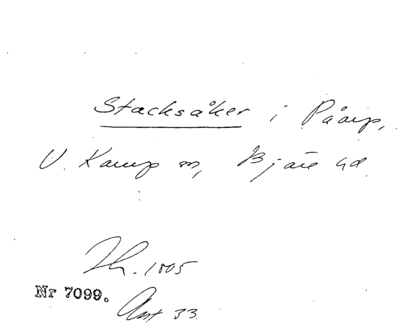 Stacksåker i Påarp,
V. Karup sn, Bjäre hd.
Zh. 1805
Nr 7099.
Ant 33